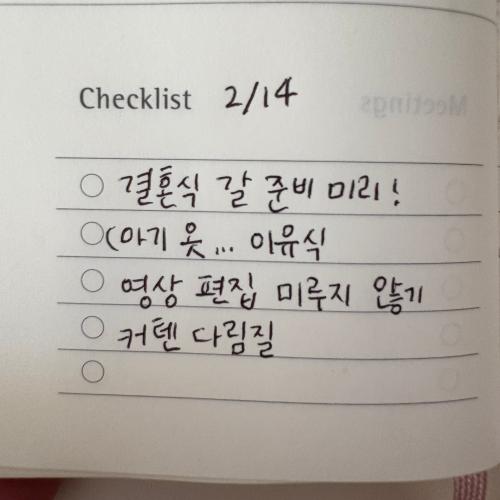 Checklist 2/14
결혼식 갈 준비 미리!
(아기 옷... 이유식
영상 편집 미루지 않기
커텐 다림질